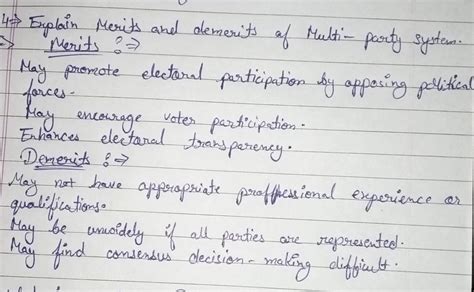 4⇒ Explain Merits and demerits of Multi-party system.
⇒ Merits :⇒
May promote electoral participation by opposing political
forces.
May encourage voter participation.
Enhances electoral transparency.
Demerits :⇒
May not have appropriate proffessional experience or
qualifications.
May be unwidely if all parties are represented.
May find consensus decision-making difficult.